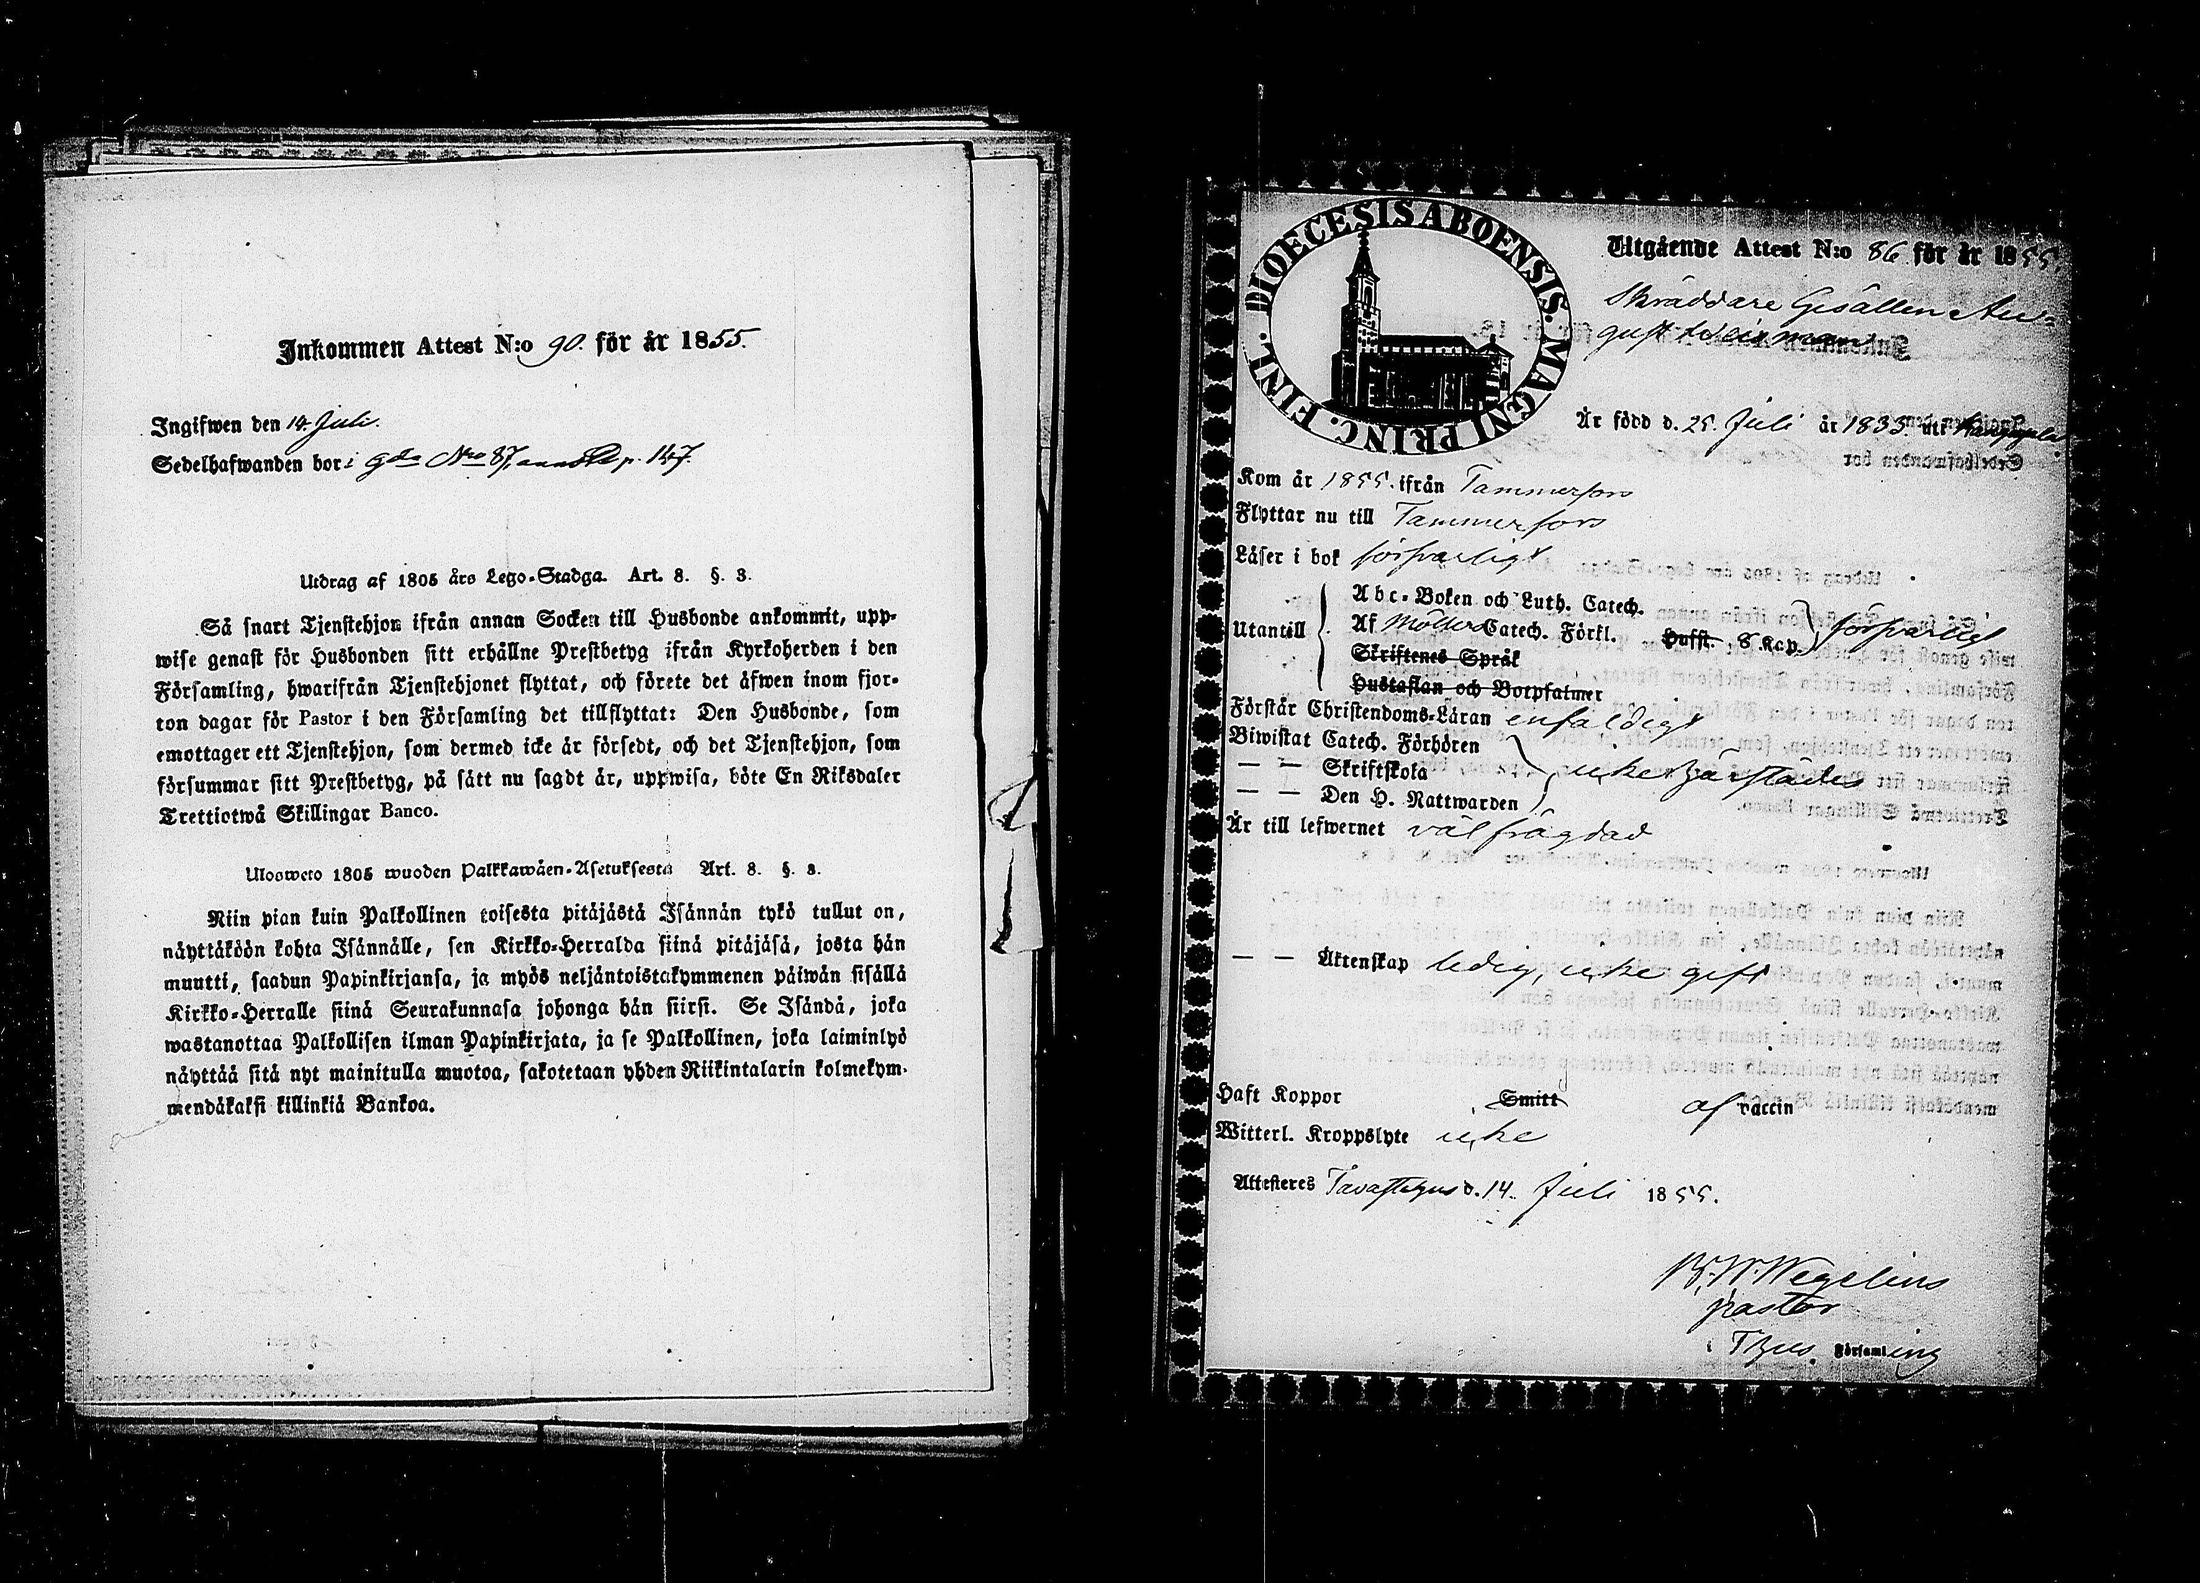 Inkommen Attest N:o 90. för år 1855.
Ingifwen den 14. Juli.
Sedelhafwanden bor i gda Nro 87, p. 147.
Utdrag af 1805 års Lego-Stadga. Art. 8. §. 3.
Så snart Tjenstehjon ifrån annan Socken till Husbonde ankommit, upp-
wise genast för Husbonden sitt erhållne Prestbetyg ifrån Kyrkoherden i den
Församling, hwarifrån Tjenstehjonet flyttat, och förete det äfwen inom fjor-
ton dagar för Pastor i den Församling det tillflyttat: Den Husbonde, som
emottager ett Tjenstehjon, som dermed icke är försedt, och det Tjenstehjon, som
försummar sitt Prestbetyg, på sätt nu sagdt är, uppwisa, böte En Riksdaler
Trettiotwå Skillingar Banco.
Ulosweto 1805 wuoden Palkkawäen-Asetuksesta Art. 8. §. 3.
Niin pian kuin Palkollinen toisesta pitäjästä Isännän tykö tullut on,
näyttäköön kohta Isännälle, sen Kirkko-Herralda siinä pitäjäsä, josta hän
muutti, saadun Papinkirjansa, ja myös neljäntoistakymmenen päiwän sisällä
Kirkko-Herralle siinä Seurakunnasa johonga hän siirsi. Se Isändä, joka
wastanottaa Palkollisen ilman Papinkirjata, ja se Palkollinen, joka laiminlyö
näyttää sitä nyt mainitulla muotoa, sakotetaan yhden Riikintalarin kolmekym-
mendäkaksi killinkiä Bankoa.
DIOECESIS ABOENSIS. MAGNI PRINC. FINL.
Utgående Attest N:o 86 för år 1855.
Skräddare Gesällen Au-
gust
Är född d. 25. Juli år 1835. uti
Kom år 1855. ifrån Tammerfors
Flyttar nu till Tammerfors
Läser i bok försvarligt
Abc-Boken och Luth. Catech.
Utantill Af Möllers Catech. Förkl. Hufst. 8 Kap. försvarligt
Skriftenes Språk
Hustaflan och Botpsalmer
Förstår Christendoms-Läran enfaldigt
Biwistat Catech. Förhören
— — Skriftskola icke härstädes
— — Den H. Nattwarden
Är till lefwernet välfrägdad
— — Äktenskap ledig, icke gift
Haft Koppor Smitt af vaccin
Witterl. Kroppslyte icke
Attesteres Tavastehus d. 14. Juli 1855.
B. W. Wegelius
pastor
i Thus. Församling